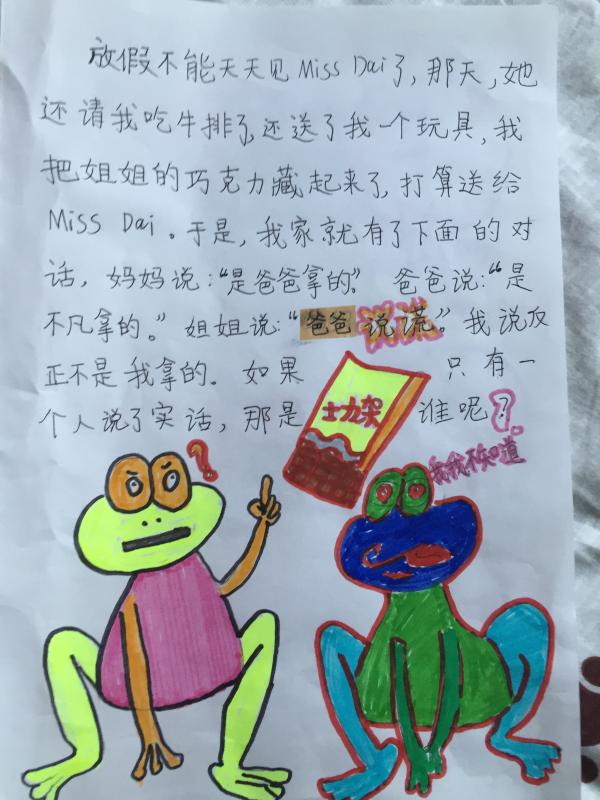 放假不能天天见Miss Dai了,那天,她
还请我吃牛排了,还送了我一个玩具,我
把姐姐的巧克力藏起来了,打算送给
Miss Dai。于是,我家就有了下面的对
话,妈妈说:“是爸爸拿的”。爸爸说:“是
不凡拿的。”姐姐说:“爸爸说谎”。我说反
正不是我拿的。如果 只有一
个人说了实话,那是 谁呢?
士力架
?
我我不知道